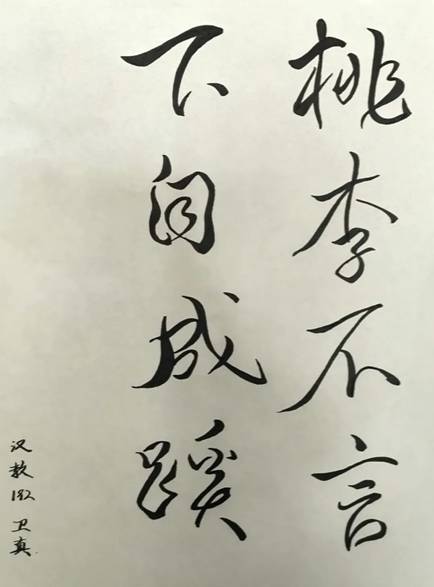 桃李不言
下自成蹊
汉教182 卫真